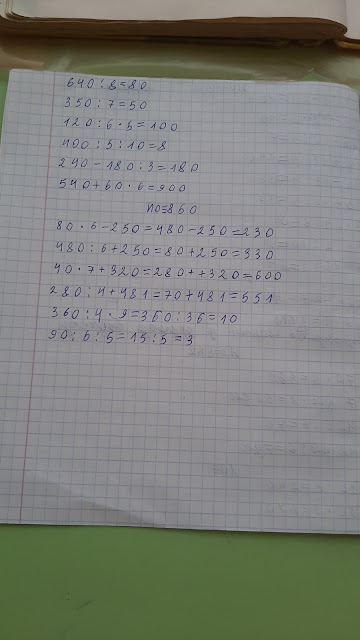 640 : 8 = 80
350 : 7 = 50
120 : 6 · 5 = 100
400 : 5 : 10 = 8
240 - 180 : 3 = 180
540 + 60 · 6 = 900
№ 860
80 · 6 - 250 = 480 - 250 = 230
480 : 6 + 250 = 80 + 250 = 330
40 · 7 + 320 = 280 + + 320 = 600
280 : 4 + 481 = 70 + 481 = 551
360 : 4 · 9 = 360 : 36 = 10
90 : 6 : 5 = 15 : 5 = 3